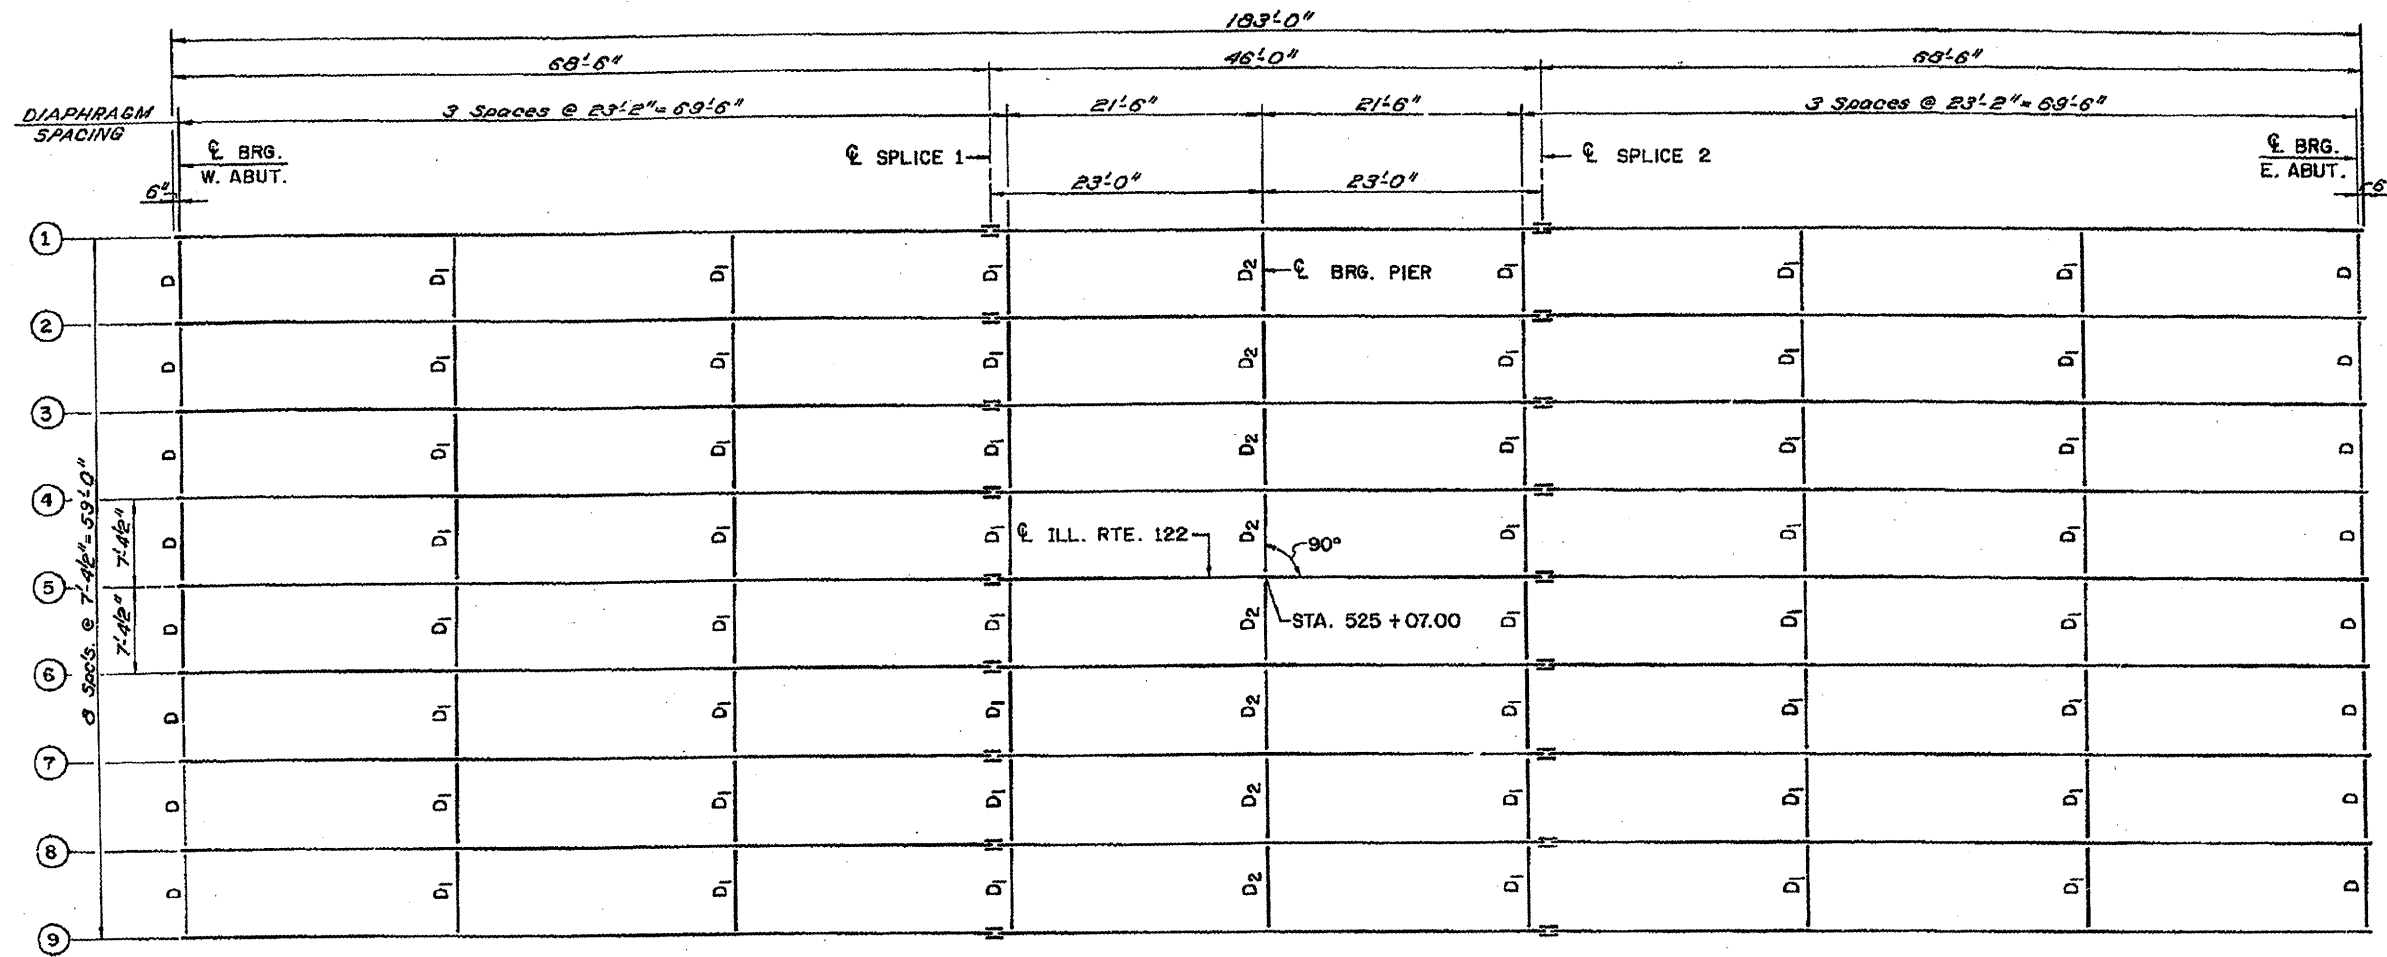 183'-0"
68'-6" 46'-0" 68'-6"
DIAPHRAGM SPACING
3 Spaces @ 23'-2"= 69'-6" 21'-6" 21'-6" 3 Spaces @ 23'-2"= 69'-6"
℄ BRG.
W. ABUT.
℄ SPLICE 1
℄ SPLICE 2
℄ BRG.
E. ABUT.
6" 23'-0" 23'-0" 6
1
D D1 D1 D1 D2 ℄ BRG. PIER D1 D1 D1 D
2
D D1 D1 D1 D2 D1 D1 D1 D
3
D D1 D1 D1 D2 D1 D1 D1 D
4
8 Spc's. @ 7'-4½"= 59'-0"
7'-4½"
D D1 D1 D1 ℄ ILL. RTE. 122 D2 90° D1 D1 D1 D
5
7'-4½"
D D1 D1 D1 D2 STA. 525 + 07.00 D1 D1 D1 D
6
D D1 D1 D1 D2 D1 D1 D1 D
7
D D1 D1 D1 D2 D1 D1 D1 D
8
D D1 D1 D1 D2 D1 D1 D1 D
9